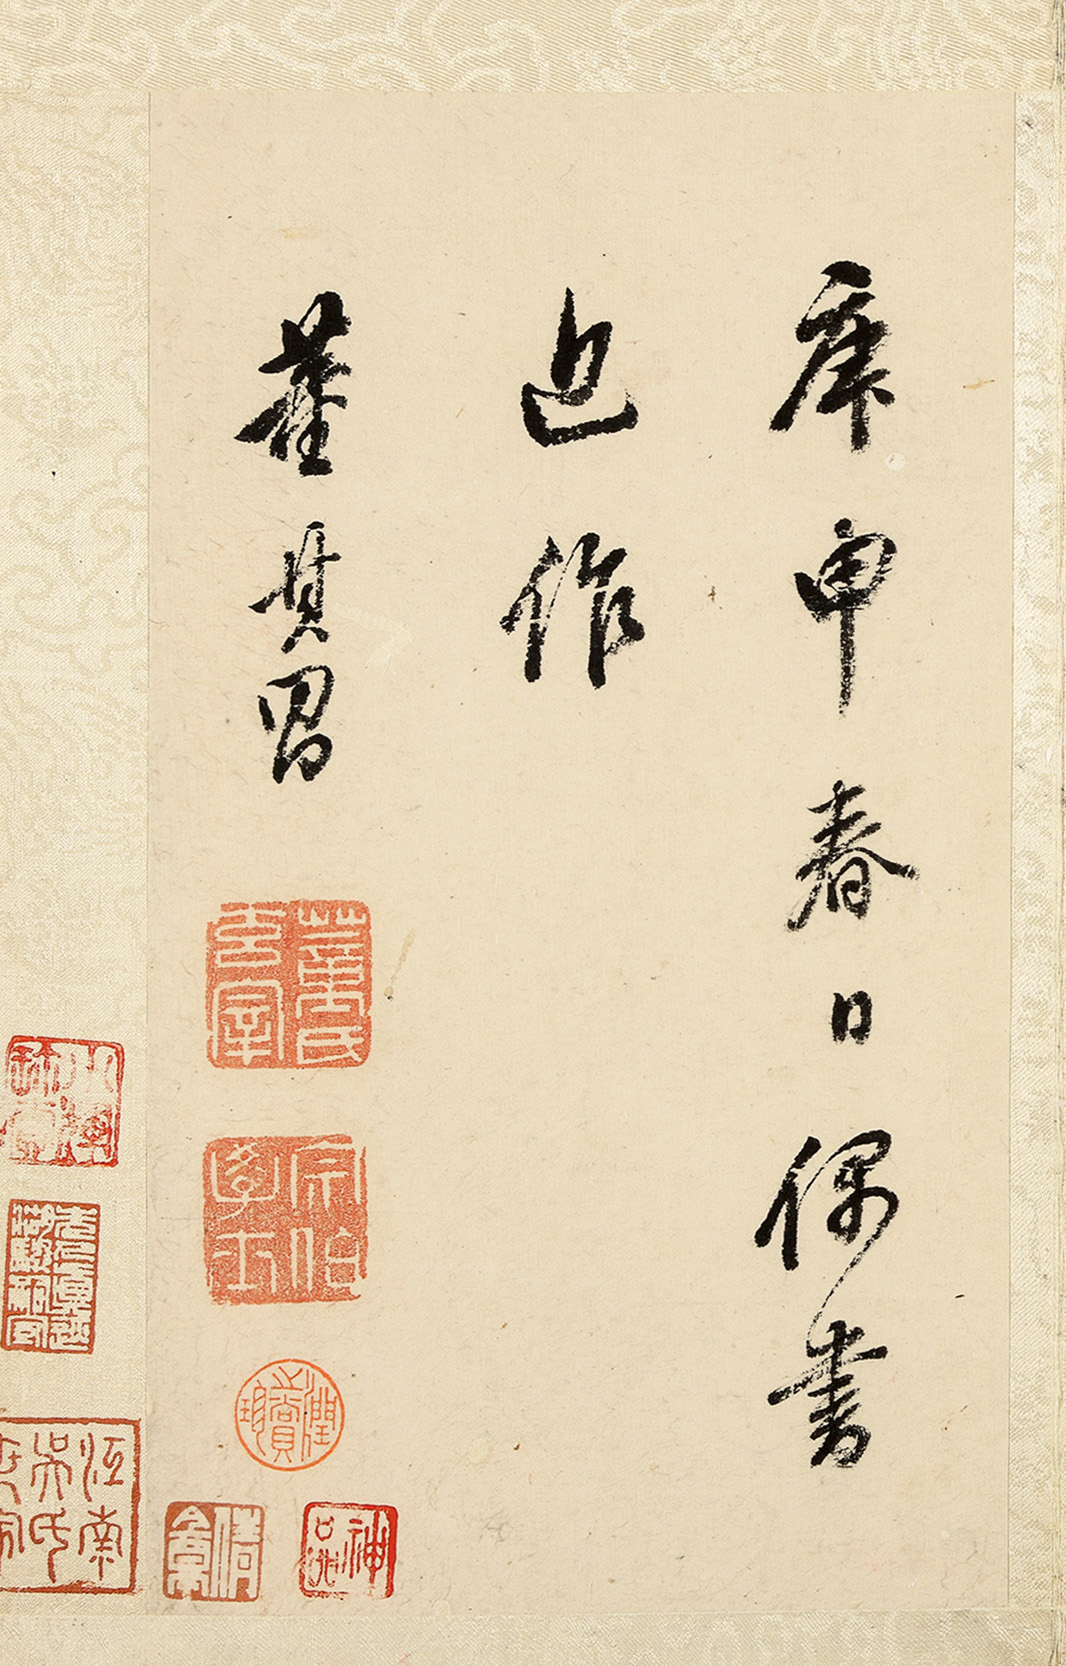 庚申春日偶書
近作
董其昌
董氏玄宰
宗伯學士
神品
江南吳氏